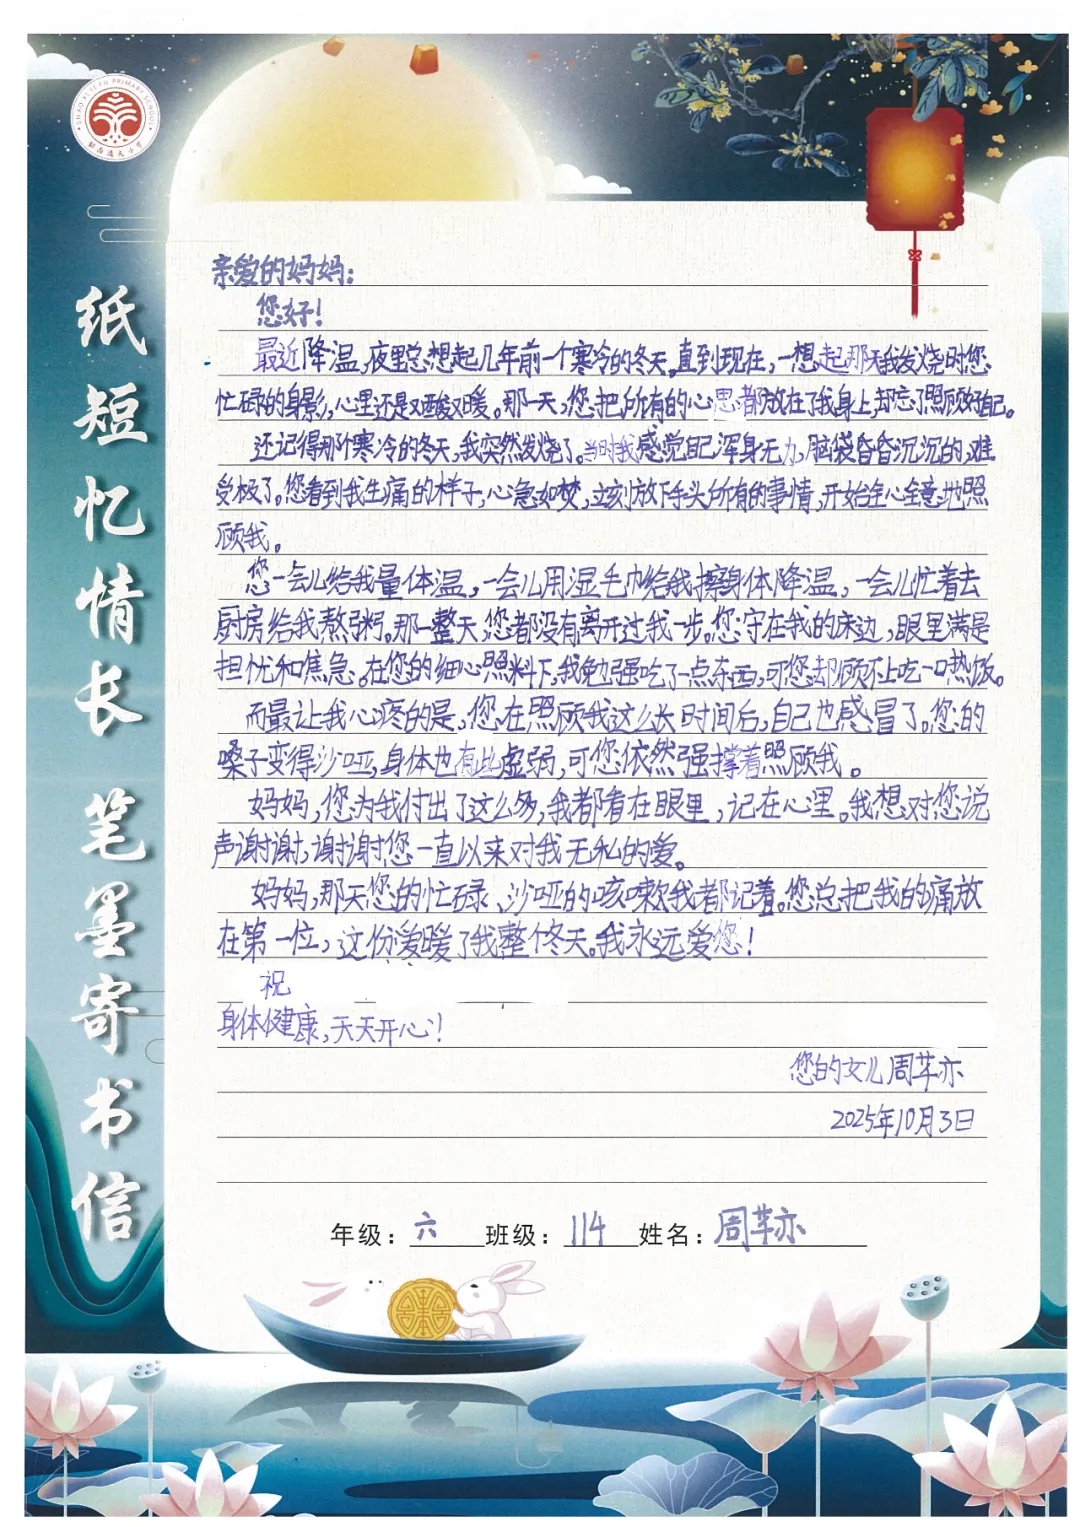 SHAO XI YI FU PRIMARY SCHOOL
邵西逸夫小学
纸短忆情长 笔墨寄书信
亲爱的妈妈：
您好！
最近降温，夜里总想起几年前一个寒冷的冬天。直到现在，一想起那天我发烧时您
忙碌的身影，心里还是又酸又暖。那一天，您把所有的心思都放在了我身上，却忘了照顾好自己。
还记得那个寒冷的冬天，我突然发烧了。当时我感觉自己浑身无力，脑袋昏昏沉沉的，难
受极了。您看到我生病的样子，心急如焚，立刻放下手头所有的事情，开始全心全意地照
顾我。
您一会儿给我量体温，一会儿用湿毛巾给我擦身体降温，一会儿忙着去
厨房给我熬粥。那一整天，您都没有离开过我一步。您守在我的床边，眼里满是
担忧和焦急。在您的细心照料下，我勉强吃了一点东西，可您却顾不上吃一口热饭。
而最让我心疼的是，您在照顾我这么长时间后，自己也感冒了。您的
嗓子变得沙哑，身体也有些虚弱，可您依然强撑着照顾我。
妈妈，您为我付出了这么多，我都看在眼里，记在心里。我想对您说
声谢谢，谢谢您一直以来对我无私的爱。
妈妈，那天您的忙碌、沙哑的咳嗽我都记着。您总把我的痛放
在第一位，这份爱暖了我整个冬天。我永远爱您！
祝
身体健康，天天开心！
您的女儿周芊亦
2025年10月3日
年级：六 班级：114 姓名：周芊亦